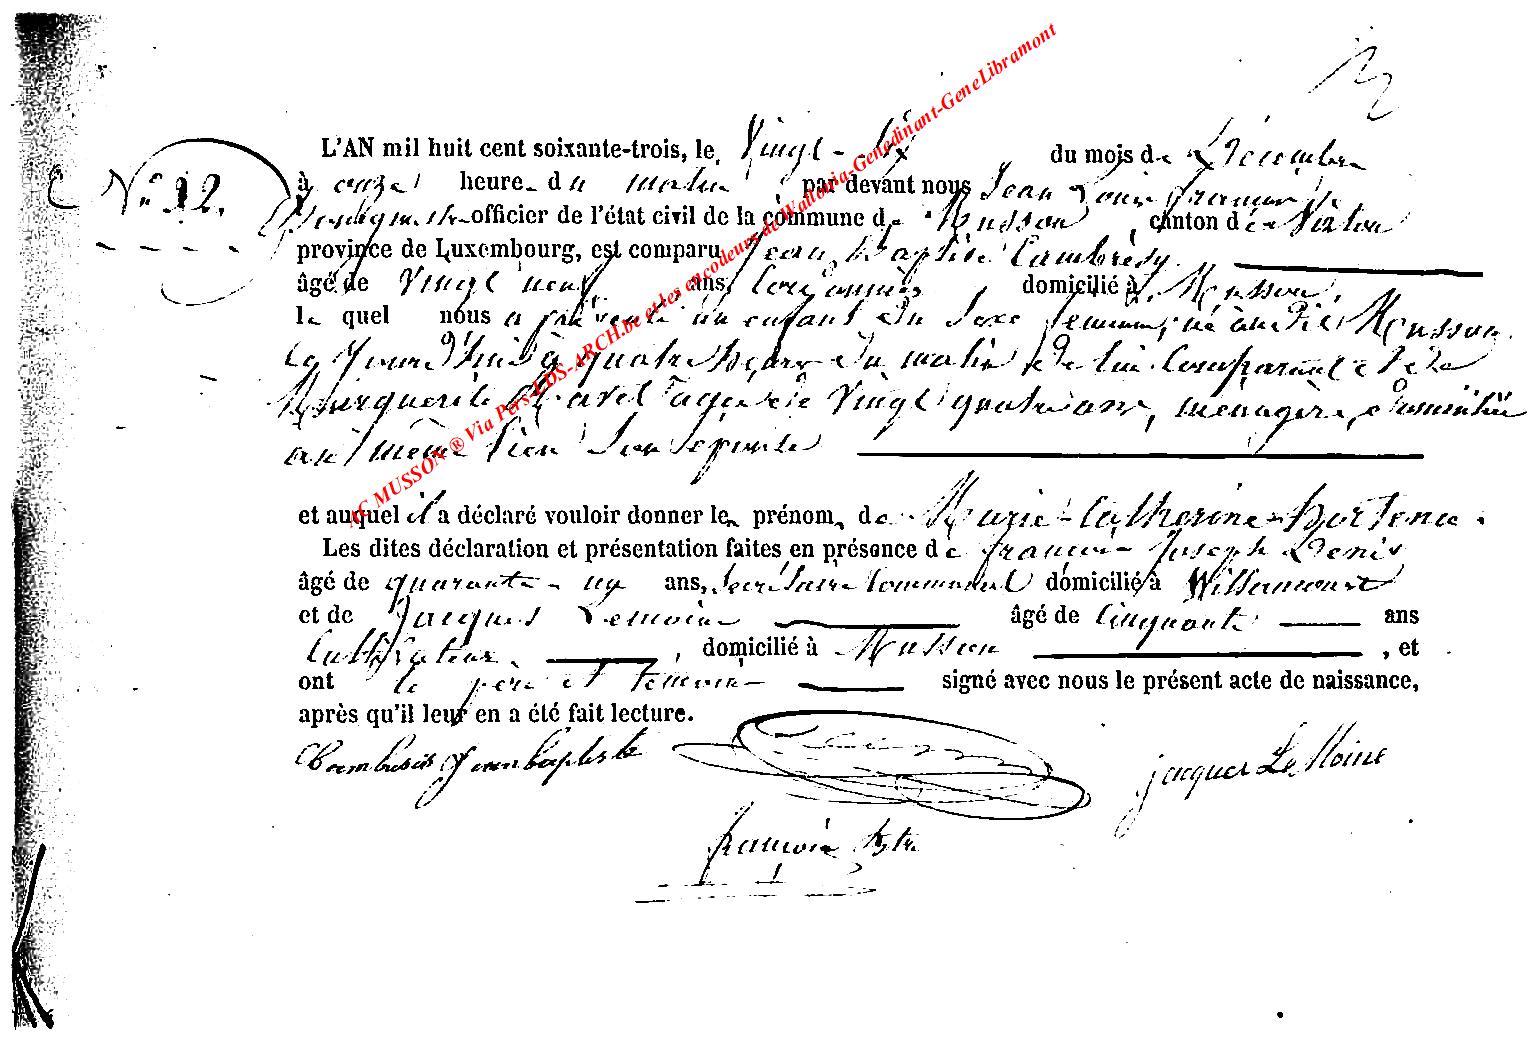 L'AN mil huit cent soixante-trois, le Vingt-six du mois de Décembre
N° 12.
à onze heure du matin par devant nous Jean Louis François
Bourgmestre officier de l'état civil de la commune de Musson, canton de Virton
province de Luxembourg, est comparu Jean Baptiste Cambrésy
âgé de Vingt neuf ans, Cordonnier domicilié à Musson,
lequel nous a présenté un enfant du sexe féminin, né audit Musson
ce jourd'hui à quatre heures du matin de lui Comparant et de
Marguerite agée de Vingt quatre ans, ménagère, domiciliée
au même lieu son épouse
et auquel il a déclaré vouloir donner le prénom de Marie-Catherine-Hortence.
Les dites déclaration et présentation faites en présence de François Joseph Denis
âgé de quarante-un ans, Secrétaire Communal domicilié à Willancourt
et de Jacques Lemoine âgé de Cinquante ans
Cultivateur, domicilié à Musson, et
ont le père et témoins signé avec nous le présent acte de naissance,
après qu'il leur en a été fait lecture.
Cambresis Jean baptiste
jacques Le Moine
françois
AC MUSSON ® Via Pers LDS-ARCH.be et les encodeurs de Wallonia-Genedinant-GeneLibramont